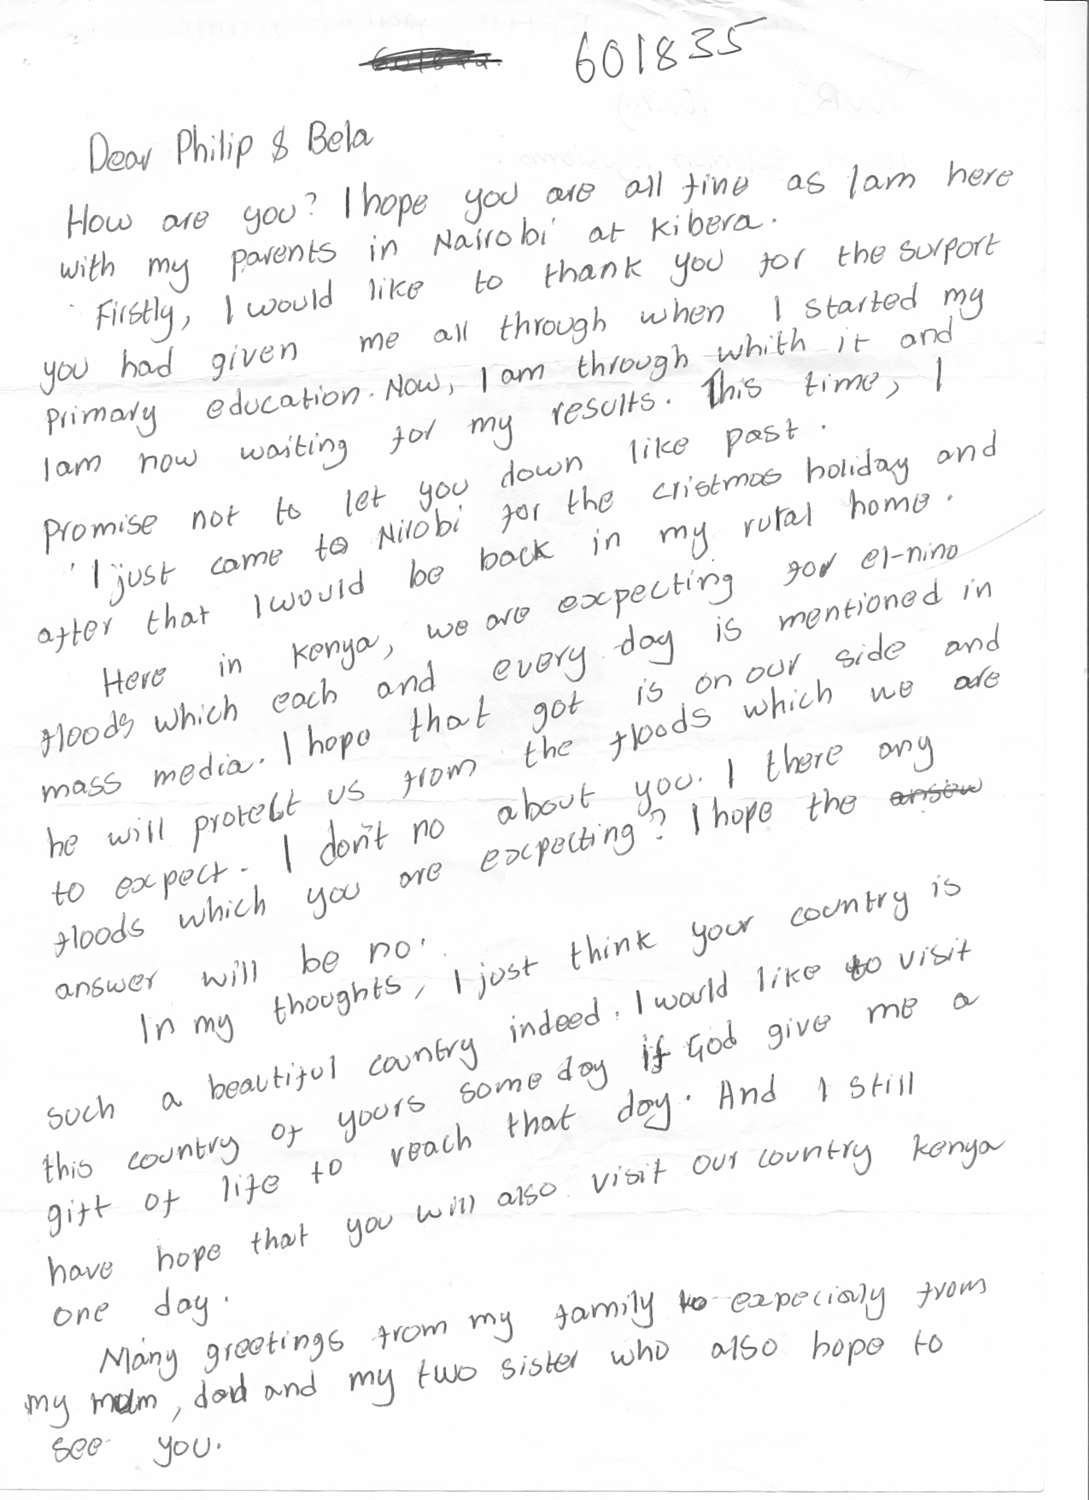 601835
Dear Philip & Bela
How are you? I hope you are all fine as Iam here
with my parents in Nairobi at Kibera.
Firstly, I would like to thank you for the surport
you had given me all through when I started my
primary education. Now, I am through whith it and
Iam now waiting for my results. This time, I
promise not to let you down like past.
I just came to Nilobi for the cristmas holiday and
after that I would be back in my rutal home.
Here in kenya, we are expecting for el-nino
floods which each and every day is mentioned in
mass media. I hope that got is on our side and
he will protect us from the floods which we are
to expect. I don't no about you. I there any
floods which you are expecting? I hope the answ
answer will be no.
In my thoughts, I just think your country is
such a beautiful country indeed. I would like to visit
this country of yours some day if God give me a
gift of life to reach that day. And I still
have hope that you will also visit our country kenya
one day.
Many greetings from my family to expecialy from
my mum, dad and my two sister who also hope to
see you.